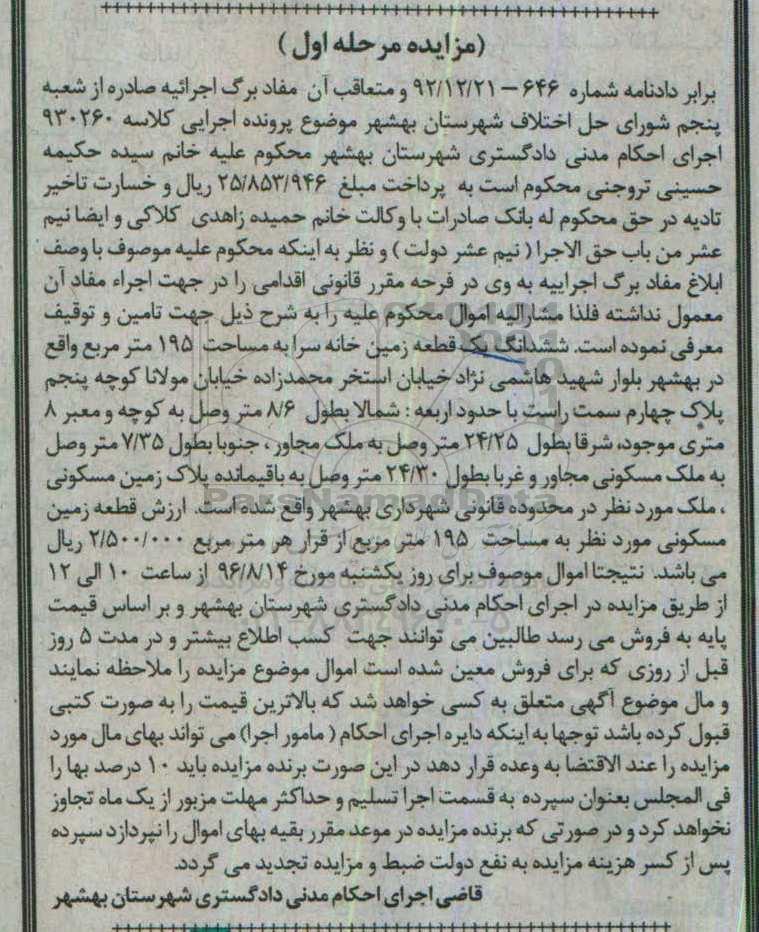 (مزایده مرحله اول)
برابر دادنامه شماره ۶۴۶ – ۹۲/۱۲/۲۱ و متعاقب آن مفاد برگ اجرائیه صادره از شعبه
پنجم شورای حل اختلاف شهرستان بهشهر موضوع پرونده اجرایی کلاسه ۹۳۰۲۶۰
اجرای احکام مدنی دادگستری شهرستان بهشهر محکوم علیه خانم سیده حکیمه
حسینی تروجنی محکوم است به پرداخت مبلغ ۲۵/۸۵۳/۹۴۶ ریال و خسارت تاخیر
تادیه در حق محکوم له بانک صادرات با وکالت خانم حمیده زاهدی کلاکی و ایضا نیم
عشر من باب حق الاجرا (نیم عشر دولت) و نظر به اینکه محکوم علیه موصوف با وصف
ابلاغ مفاد برگ اجراییه به وی در فرجه مقرر قانونی اقدامی را در جهت اجراء مفاد آن
معمول نداشته فلذا مشارالیه اموال محکوم علیه را به شرح ذیل جهت تامین و توقیف
معرفی نموده است. ششدانگ یک قطعه زمین خانه سرا به مساحت ۱۹۵ متر مربع واقع
در بهشهر بلوار شهید هاشمی نژاد خیابان استخر محمدزاده خیابان مولانا کوچه پنجم
پلاک چهارم سمت راست با حدود اربعه : شمالا بطول ۸/۶ متر وصل به کوچه و معبر ۸
متری موجود، شرقا بطول ۲۴/۲۵ متر وصل به ملک مجاور ، جنوبا بطول ۷/۳۵ متر وصل
به ملک مسکونی مجاور و غربا بطول ۲۴/۳۰ متر وصل به باقیمانده پلاک زمین مسکونی
، ملک مورد نظر در محدوده قانونی شهرداری بهشهر واقع شده است. ارزش قطعه زمین
مسکونی مورد نظر به مساحت ۱۹۵ متر مربع از قرار هر متر مربع ۲/۵۰۰/۰۰۰ ریال
می باشد. نتیجتا اموال موصوف برای روز یکشنبه مورخ ۹۶/۸/۱۴ از ساعت ۱۰ الی ۱۲
از طریق مزایده در اجرای احکام مدنی دادگستری شهرستان بهشهر و بر اساس قیمت
پایه به فروش می رسد طالبین می توانند جهت کسب اطلاع بیشتر و در مدت ۵ روز
قبل از روزی که برای فروش معین شده است اموال موضوع مزایده را ملاحظه نمایند
و مال موضوع آگهی متعلق به کسی خواهد شد که بالاترین قیمت را به صورت کتبی
قبول کرده باشد توجها به اینکه دایره اجرای احکام (مامور اجرا) می تواند بهای مال مورد
مزایده را عند الاقتضا به وعده قرار دهد در این صورت برنده مزایده باید ۱۰ درصد بها را
فی المجلس بعنوان سپرده به قسمت اجرا تسلیم و حداکثر مهلت مزبور از یک ماه تجاوز
نخواهد کرد و در صورتی که برنده مزایده در موعد مقرر بقیه بهای اموال را نپردازد سپرده
پس از کسر هزینه مزایده به نفع دولت ضبط و مزایده تجدید می گردد.
قاضی اجرای احکام مدنی دادگستری شهرستان بهشهر
ParsNamadData